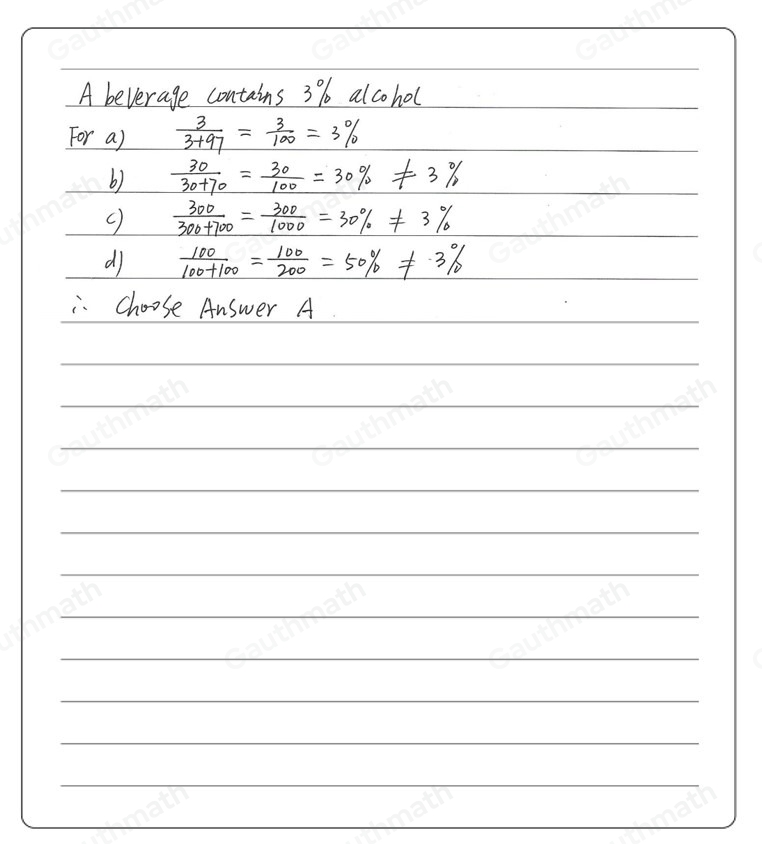 A beverage contains 3% alcohol
For a) 3/(3+97) = 3/100 = 3%
b) 30/(30+70) = 30/100 = 30% ≠ 3%
c) 300/(300+700) = 300/1000 = 30% ≠ 3%
d) 100/(100+100) = 100/200 = 50% ≠ 3%
∴ Choose Answer A
Gauthmath